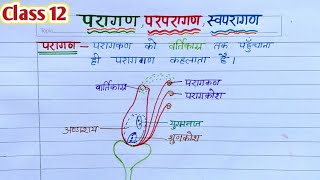 Class 12
परागण, परपरागण, स्वपरागण
परागण – परागकण को वर्तिकाग्र तक पहुँचाना
ही परागण कहलाता है।
वर्तिकाग्र
परागकण
परागकोश
अण्डाशय
युग्मनज
भ्रूणकोश